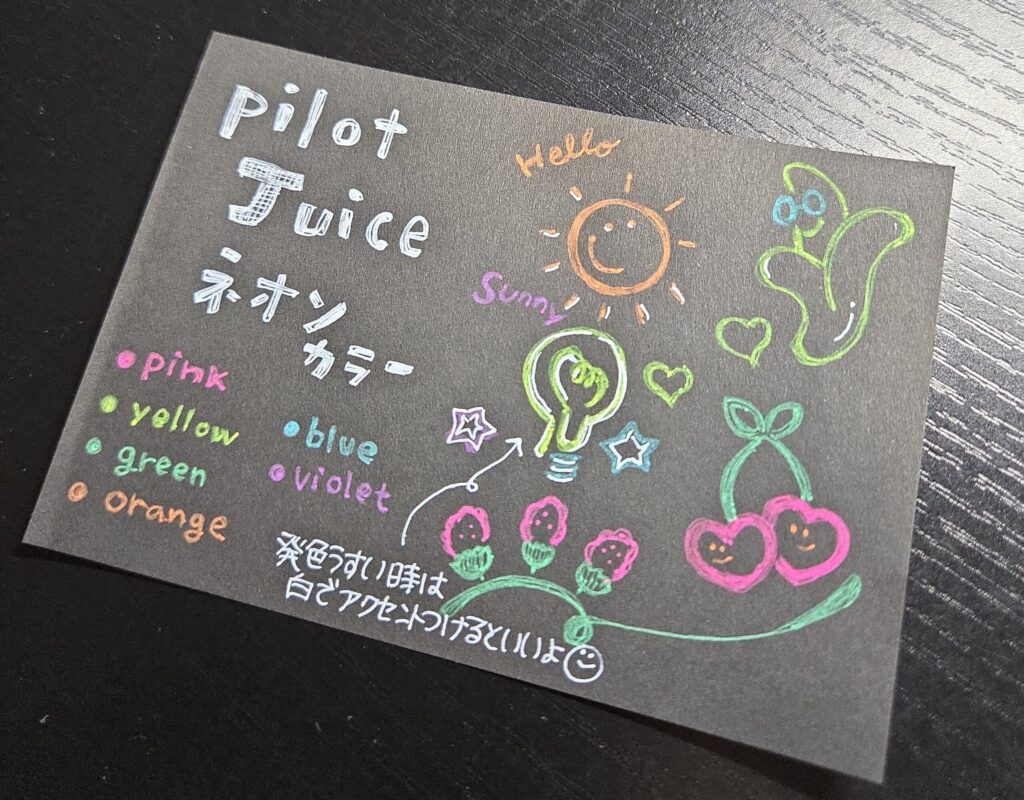 pilot
Juice
ネオン
カラー
pink
yellow
green
orange
blue
violet
Hello
Sunny
発色うすい時は
白でアクセントつけるといいよ